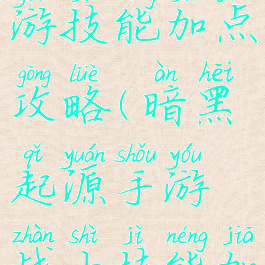 游技能加点
gōng lüè àn hēi
攻略(暗黑
qǐ yuán shǒu yóu
起源手游
zhàn shì jì néng jiā